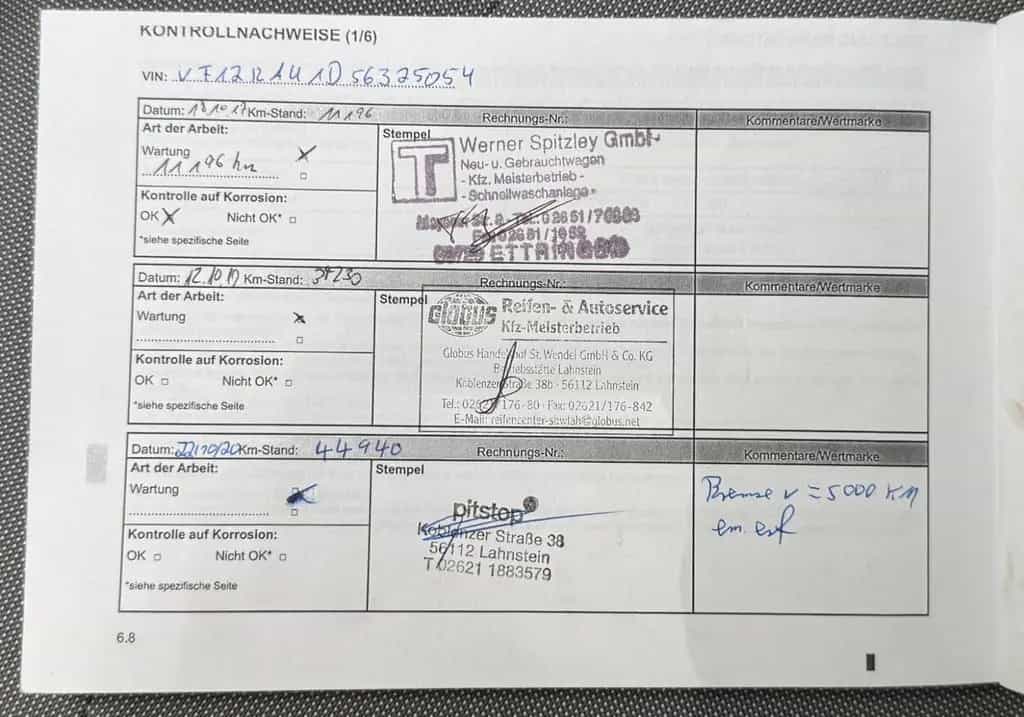 KONTROLLNACHWEISE (1/6)
VIN: VF12RAU1D56325054
Datum: Km-Stand: 11196 Rechnungs-Nr.: Kommentare/Wertmarke
Art der Arbeit: Stempel
Wartung
11196 km
Kontrolle auf Korrosion:
OK Nicht OK*
*siehe spezifische Seite
T
Werner Spitzley GmbH
Neu- u. Gebrauchtwagen
- Kfz. Meisterbetrieb -
- Schnellwaschanlage -
ETTRINGEN
Datum: 12.10.19 Km-Stand: Rechnungs-Nr.: Kommentare/Wertmarke
Art der Arbeit: Stempel
Wartung
Kontrolle auf Korrosion:
OK Nicht OK*
*siehe spezifische Seite
GLOBUS
Reifen- & Autoservice
Kfz-Meisterbetrieb
Globus Handelshof St. Wendel GmbH & Co. KG
Betriebsstätte Lahnstein
Koblenzer Straße 38b - 56112 Lahnstein
Tel.: 02621/176-80 - Fax: 02621/176-842
E-Mail: reifencenter-sbwlah@globus.net
Datum: 22/10/20 Km-Stand: 44940 Rechnungs-Nr.: Kommentare/Wertmarke
Art der Arbeit: Stempel
Wartung
Kontrolle auf Korrosion:
OK Nicht OK*
*siehe spezifische Seite
pitstop
Koblenzer Straße 38
56112 Lahnstein
T 02621 1883579
Bremse v = 5000 KM
6.8